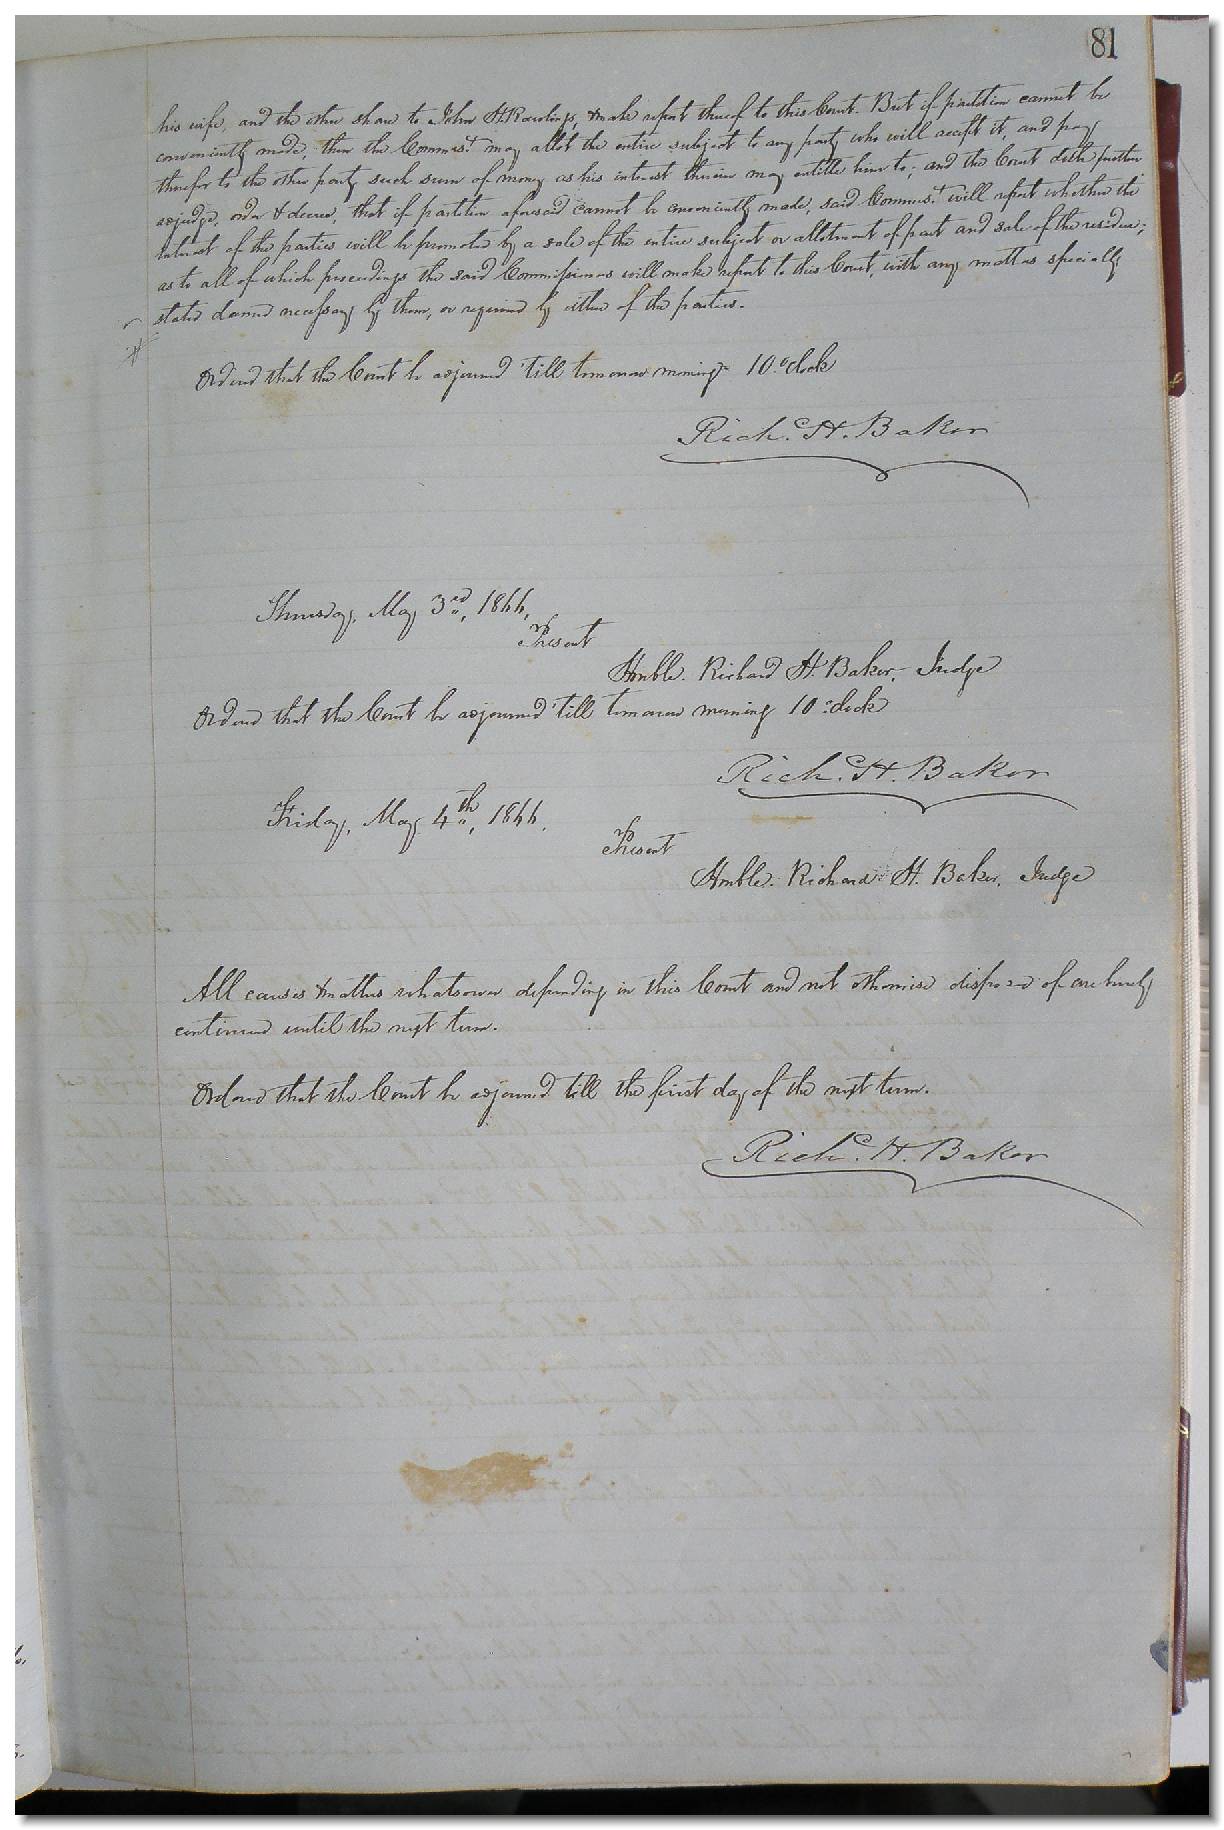 81
his wife, and the other share to John H. Rawlings, & make report thereof to this Court. But if partition cannot be
conveniently made, then the Commisst. may allot the entire subject to any party who will accept it, and pay
therefor to the other party such sum of money as his interest therein may entitle him to; and the Court doth further
adjudge, order & decree, that if partition aforesaid cannot be conveniently made, said Commisst. will report whether the
interest of the parties will be promoted by a sale of the entire subject or allotment of part and sale of the residue;
as to all of which proceedings the said Commissioners will make report to this Court, with any matters specially
stated deemed necessary by them, or required by either of the parties.
Ordered that the Court be adjourned 'till tomorrow morning 10 o'clock
Rich. H. Baker
Thursday, May 3rd, 1866,
Present
Honble. Richard H. Baker, Judge
Ordered that the Court be adjourned 'till tomorrow morning 10 o'clock
Rich. H. Baker
Friday, May 4th, 1866.
Present
Honble. Richard H. Baker, Judge
All causes & matters whatsoever depending in this Court and not otherwise disposed of are hereby
continued until the next term.
Ordered that the Court be adjourned till the first day of the next term.
Rich. H. Baker